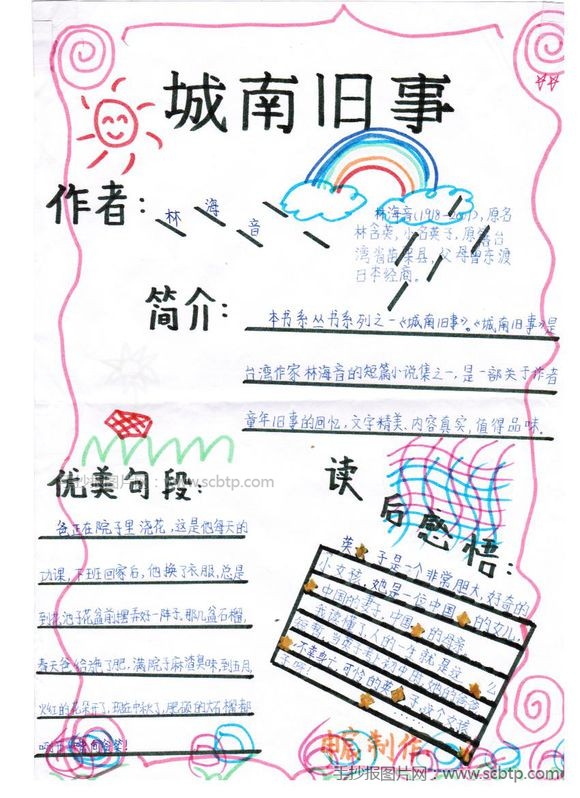 城南旧事
作者:
林海音
林海音(1918-2001),原名
林含英,小名英子,原籍台
湾省苗栗县,父母曾东渡
日本经商。
简介:
本书系丛书系列之一《城南旧事》。《城南旧事》是
台湾作家林海音的短篇小说集之一,是一部关于作者
童年旧事的回忆,文字精美、内容真实,值得品味.
手抄报图片网:www.scbtp.com
优美句段:
爸正在院子里浇花,这是他每天的
功课,下班回家后,他换了衣服,总是
到花池子花盆前摆弄好一阵子。那几盆石榴,
春天爸给施了肥,满院子麻渣臭味,到五月
火红的花朵开了,现在中秋了,肥硕的大石榴都
咧了嘴向爸笑!
读后感悟:
英子是个非常胆大,好奇的
小女孩,她是一位中国的女儿,
中国的妻子,中国的母亲。
我读懂了,人的一生就是这
子呀!
制作
手抄报图片网:www.scbtp.com